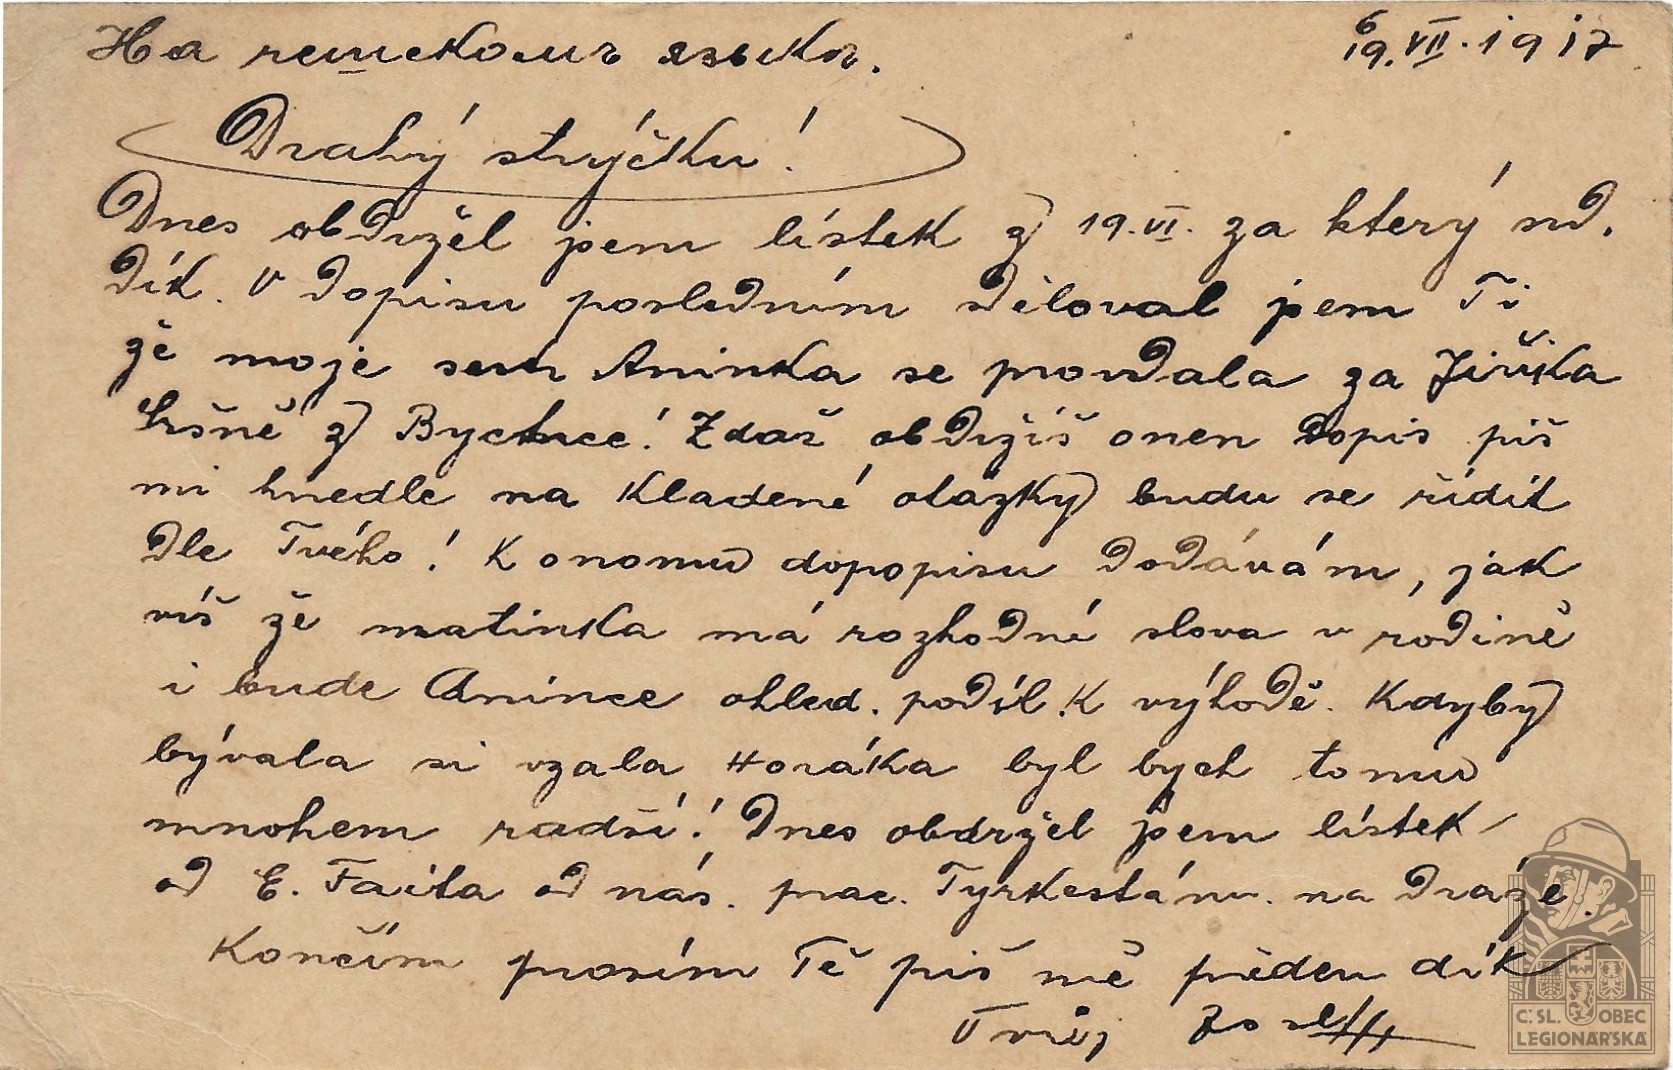 На чешскомъ языкѣ.
6 19. VII. 1917
Drahý strýčku!
Dnes obdržel jsem lístek z 19. VI. za který srd.
dík. V dopisu posledním sděloval jsem Ti
že moje sestr Aninka se provdala za Jiříka
z Bychtce! Zdaž obdržíš onen dopis piš
mi hnedle na kladené otázky budu se řídit
dle Tvého! K onomu dopopisu dodávám, jak
víš že matinka má rozhodné slova v rodině
i bude Anince ohled. podíl. k výhodě. Kdyby
bývala si vzala Horáka byl bych tomu
mnohem radší! Dnes obdržel jsem lístek
od E. Faita od nás. prac. Tyrkestánu. na dráze.
Končím prosím Tě piš mě předem dík
Tvůj
Č. SL. OBEC
LEGIONÁŘSKÁ